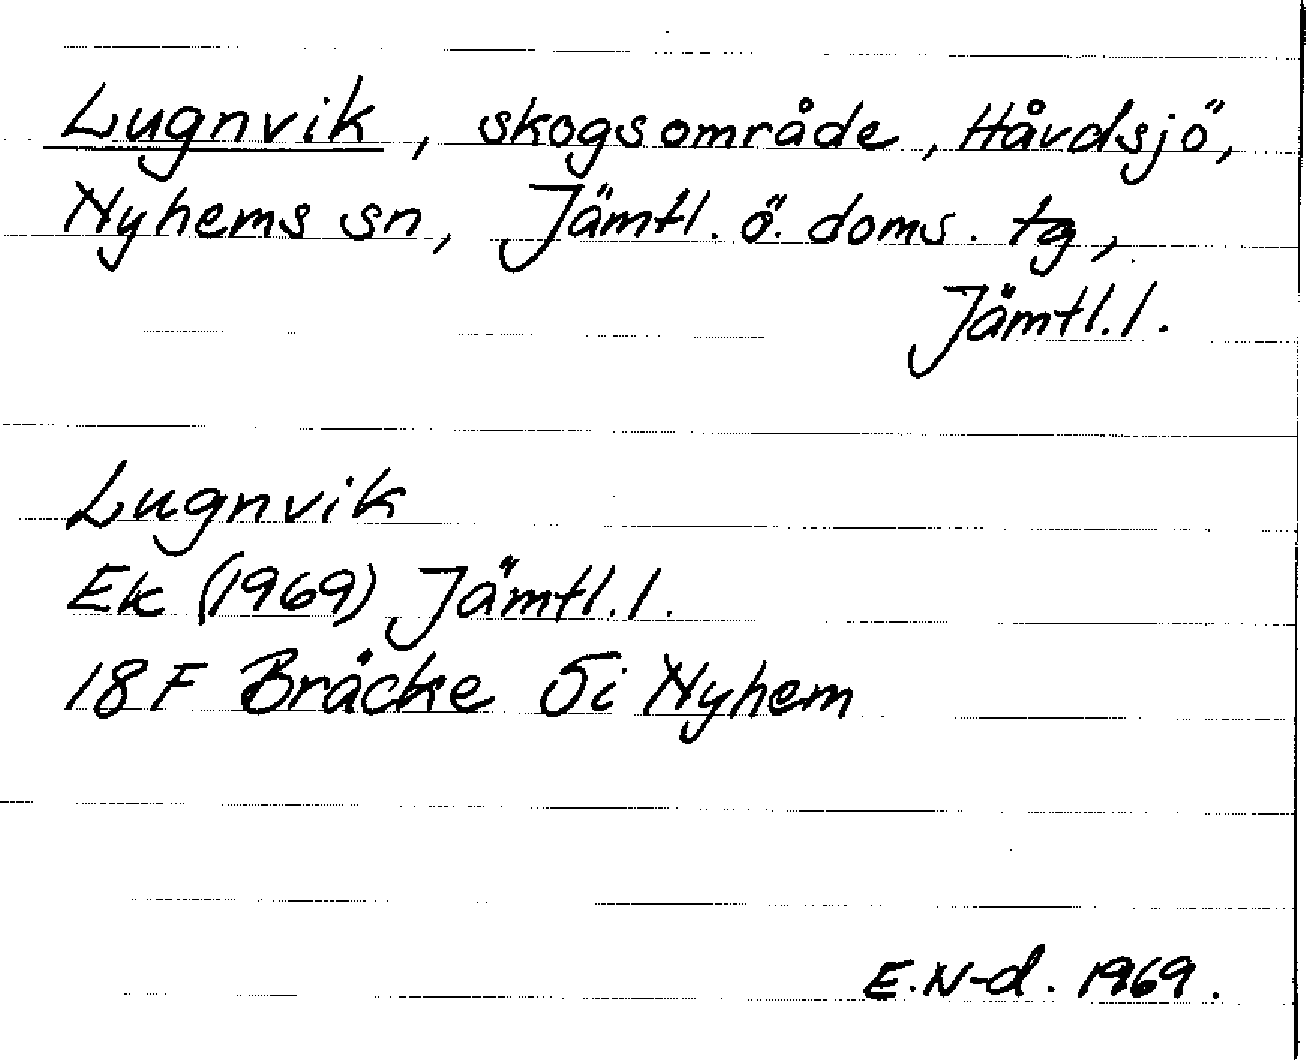 Lugnvik, skogsområde, Håvdsjö,
Nyhems sn, Jämtl. ö. doms. tg,
Jämtl. l.
Lugnvik
Ek (1969) Jämtl. l.
18 F Bräcke 5i Nyhem
E.N-d. 1969.